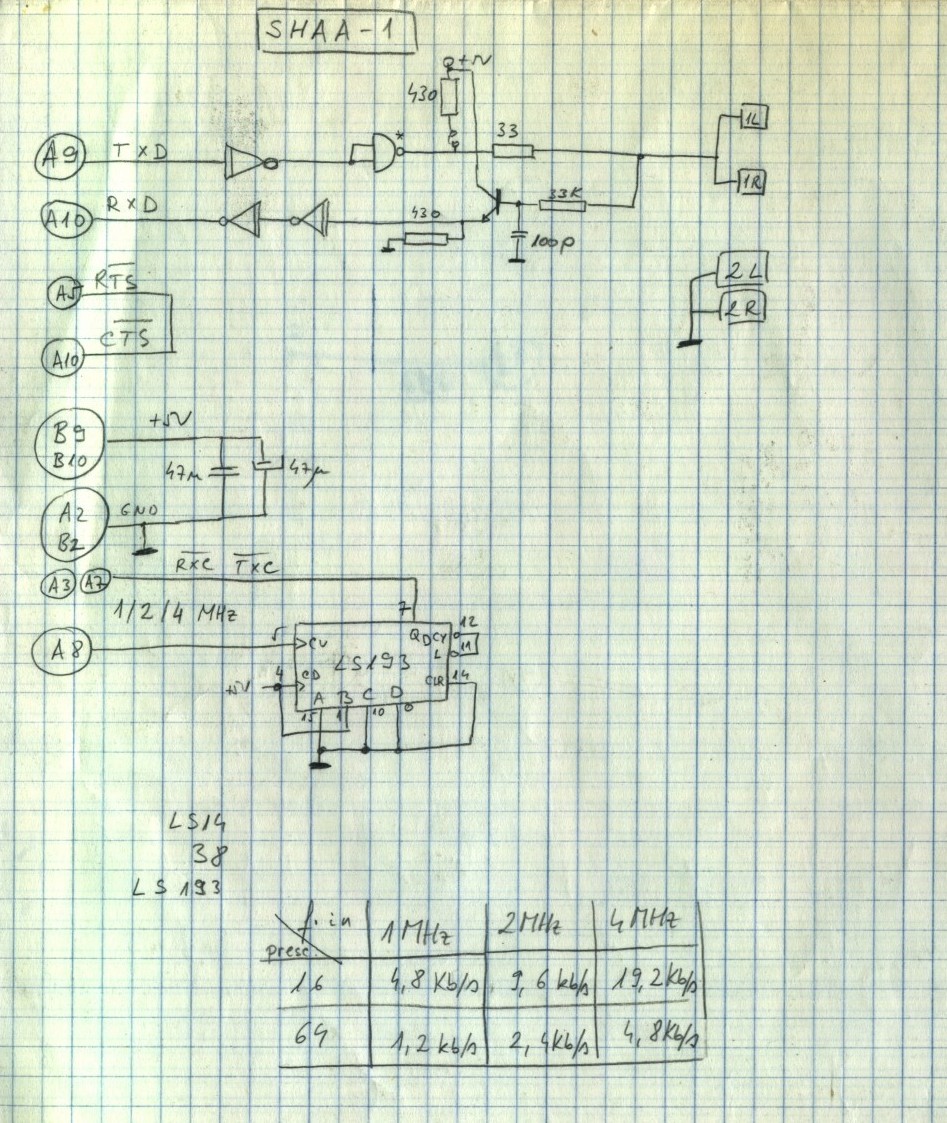 SHAA-1
+5V
430
33
1L
A9 TxD *
1R
33K
A10 RxD
430
100p
2L
A5 RTS
2R
CTS
A10
B9 +5V
B10
47μ 47μ
A2 GND
B2
RxC TxC
A3 A7
7
1/2/4 MHz
12
5 CU QD CY
11
A8 L
LS193
4 CD CLR 14
+5V
A B C D
15 1 10 9
LS14
38
LS193
f. in 1MHz 2MHz 4MHz
presc.
16 4,8 Kb/s 9,6 kb/s 19,2Kb/s
64 1,2 kb/s 2,4Kb/s 4,8Kb/s